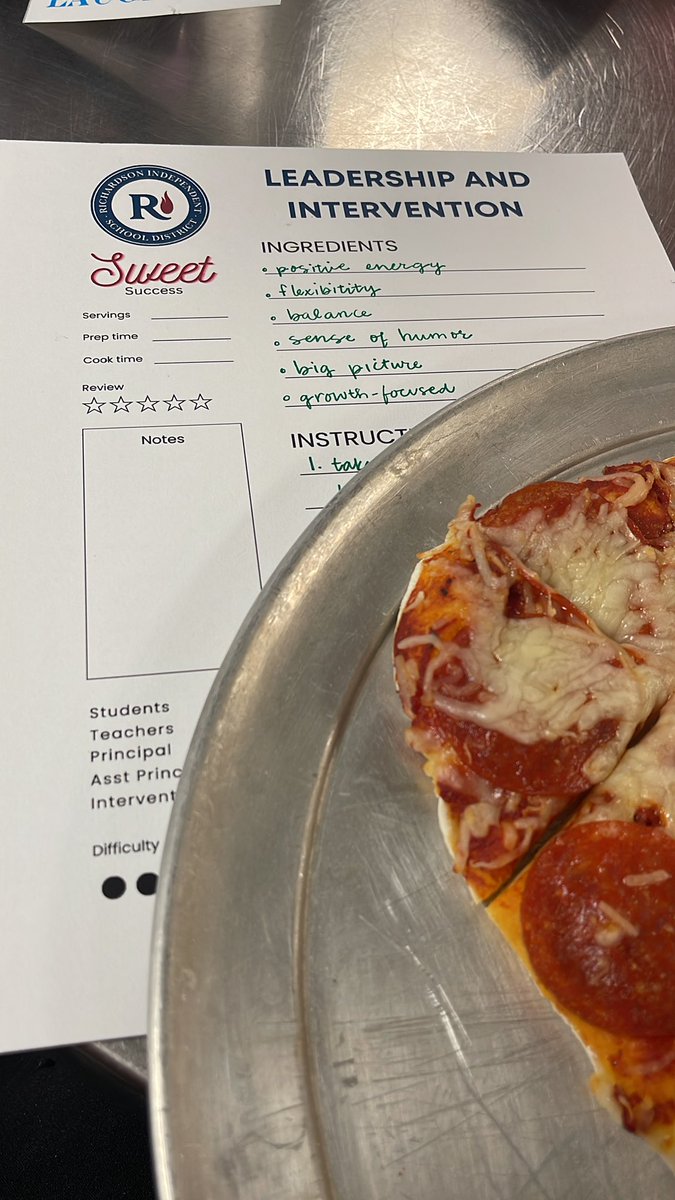 RICHARDSON INDEPENDENT
SCHOOL DISTRICT
R
Sweet
Success
LEADERSHIP AND
INTERVENTION
Servings
Prep time
Cook time
Review
Notes
INGREDIENTS
• positive energy
• flexibitity
• balance
• sense of humor
• big picture
• growth-focused
INSTRUCT
1. tak
Students
Teachers
Principal
Asst Princ
Intervent
Difficulty